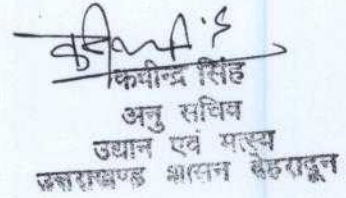 कपीन्द्र सिंह
अनु सचिव
उद्यान एवं मत्स्य
उत्तराखण्ड शासन देहरादून